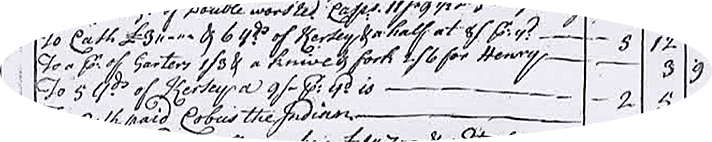 of Double worsted
To Cash £3 & 6 Yds of Kersey & a half at 8/ Pr. yd. 3 12
To a Pr. of Garters 1/3 & a knive & fork 2/6 for Henry 3 9
To 5 Yds of Kersey a 9/- Pr. Yd is 2 5
Cash paid Cobus the Indian